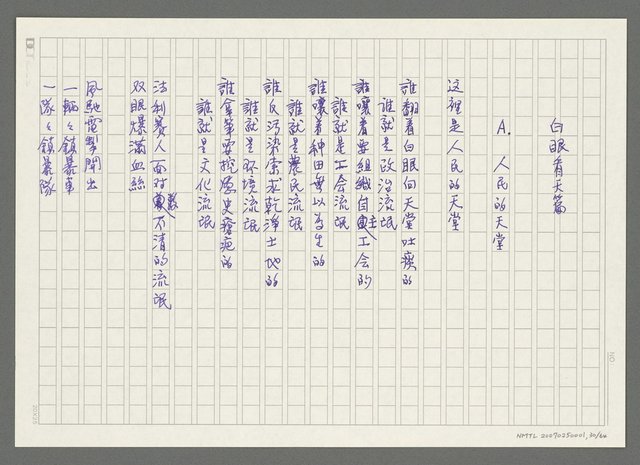 白眼看天篇
A. 人民的天堂
这裡是人民的天堂
誰翻着白眼向天堂吐痰的
誰就是政治流氓
誰嚷着要組織自主工会的
誰就是工会流氓
誰嚷着种田無以為生的
誰就是農民流氓
誰反污染索求乾淨土地的
誰就是环境流氓
誰拿筆雯挖歷史瘡疤的
誰就是文化流氓
法利賽人面对數不清的流氓
双眼爆滿血絲
風馳電掣開出
一輛々鎮暴車
一隊々鎮暴隊
NO
20X25
NMTL 20070250001, 30/64